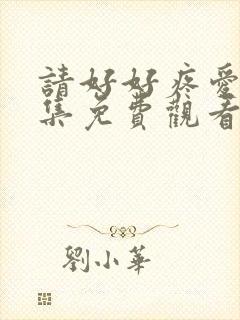 請好好疼愛
集免費觀看
劉小華